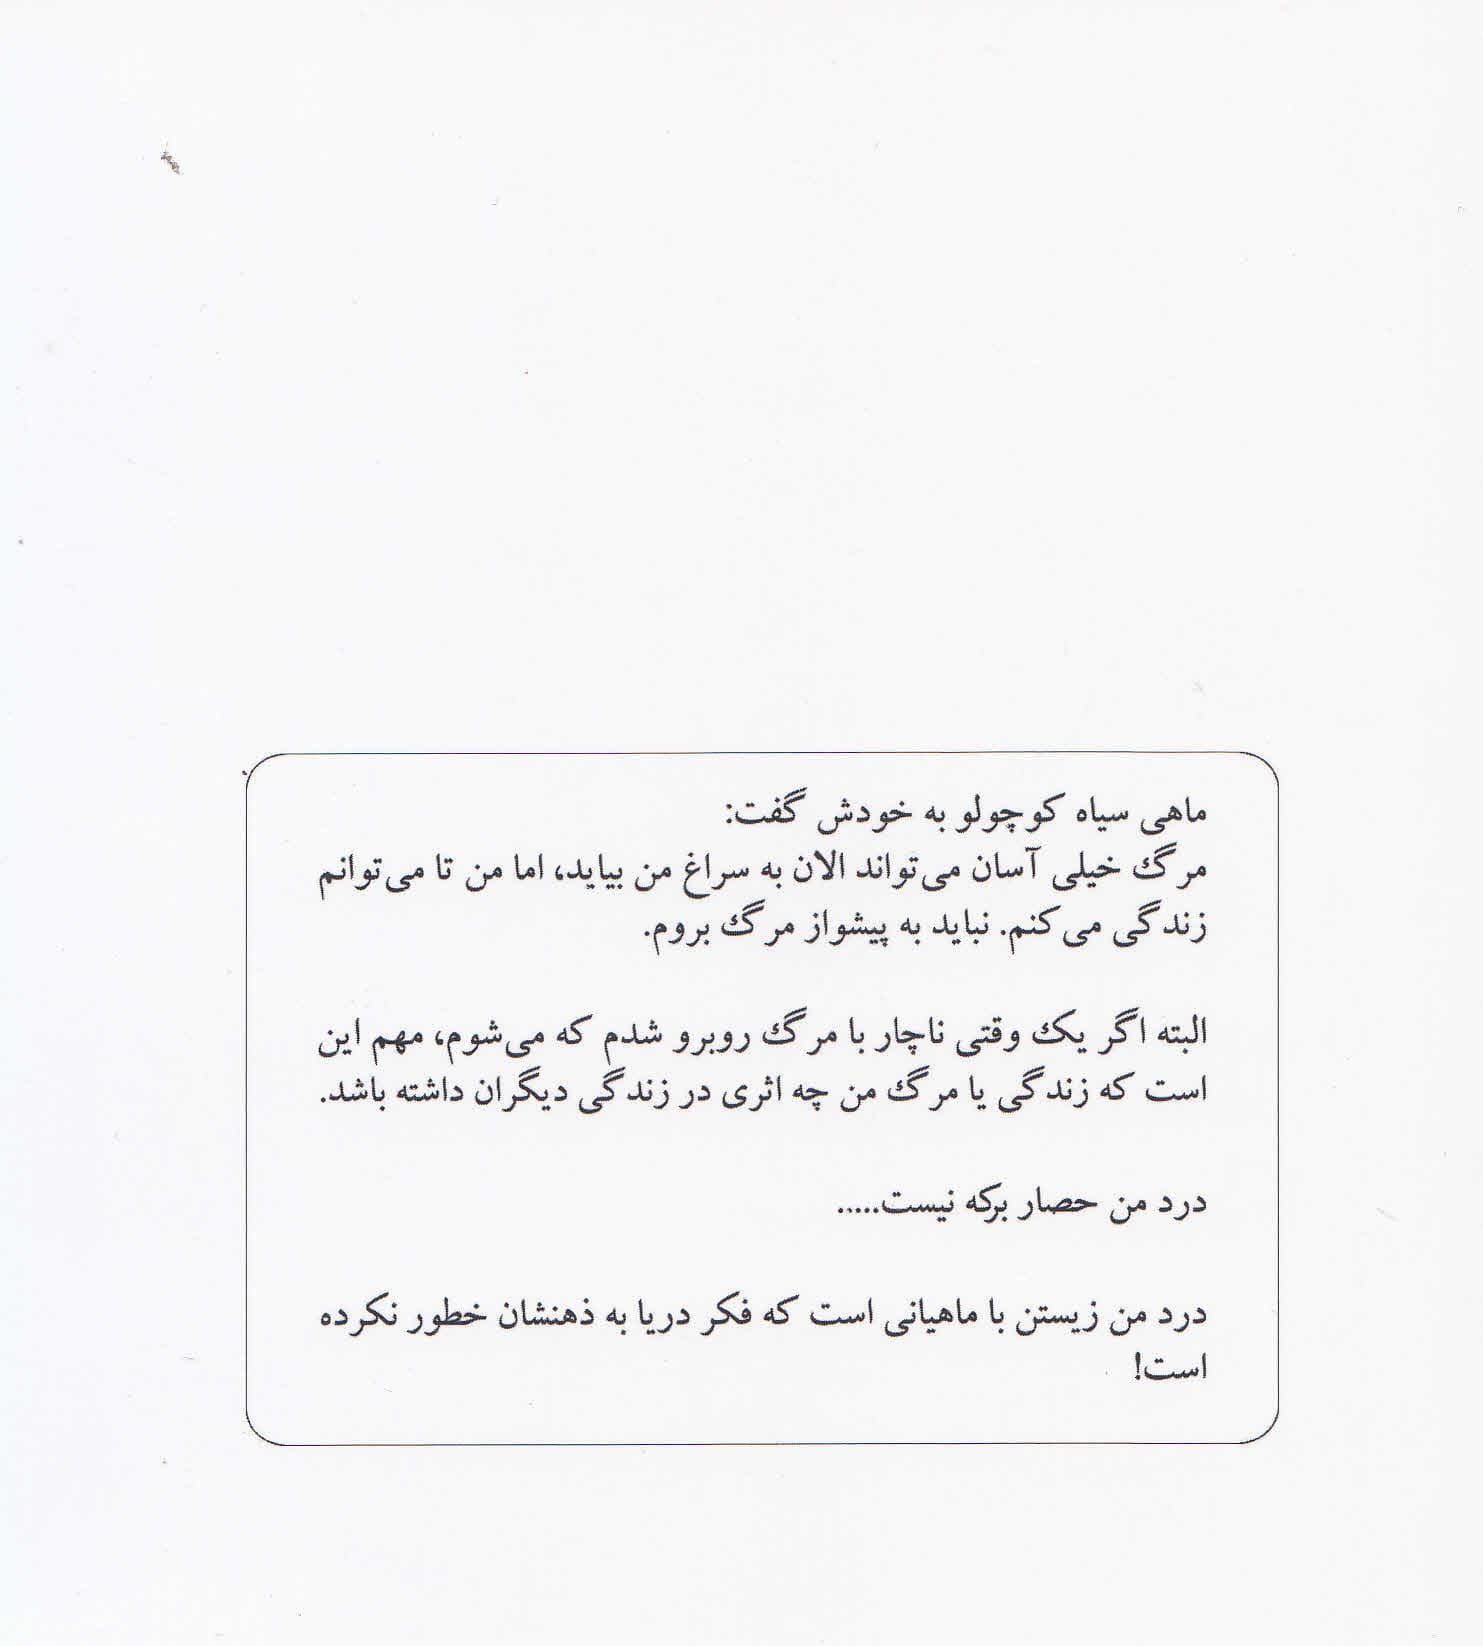 ماهی سیاه کوچولو به خودش گفت:
مرگ خیلی آسان می‌تواند الان به سراغ من بیاید، اما من تا می‌توانم
زندگی می‌کنم. نباید به پیشواز مرگ بروم.
البته اگر یک وقتی ناچار با مرگ روبرو شدم که می‌شوم، مهم این
است که زندگی یا مرگ من چه اثری در زندگی دیگران داشته باشد.
درد من حصار برکه نیست.....
درد من زیستن با ماهیانی است که فکر دریا به ذهنشان خطور نکرده
است!